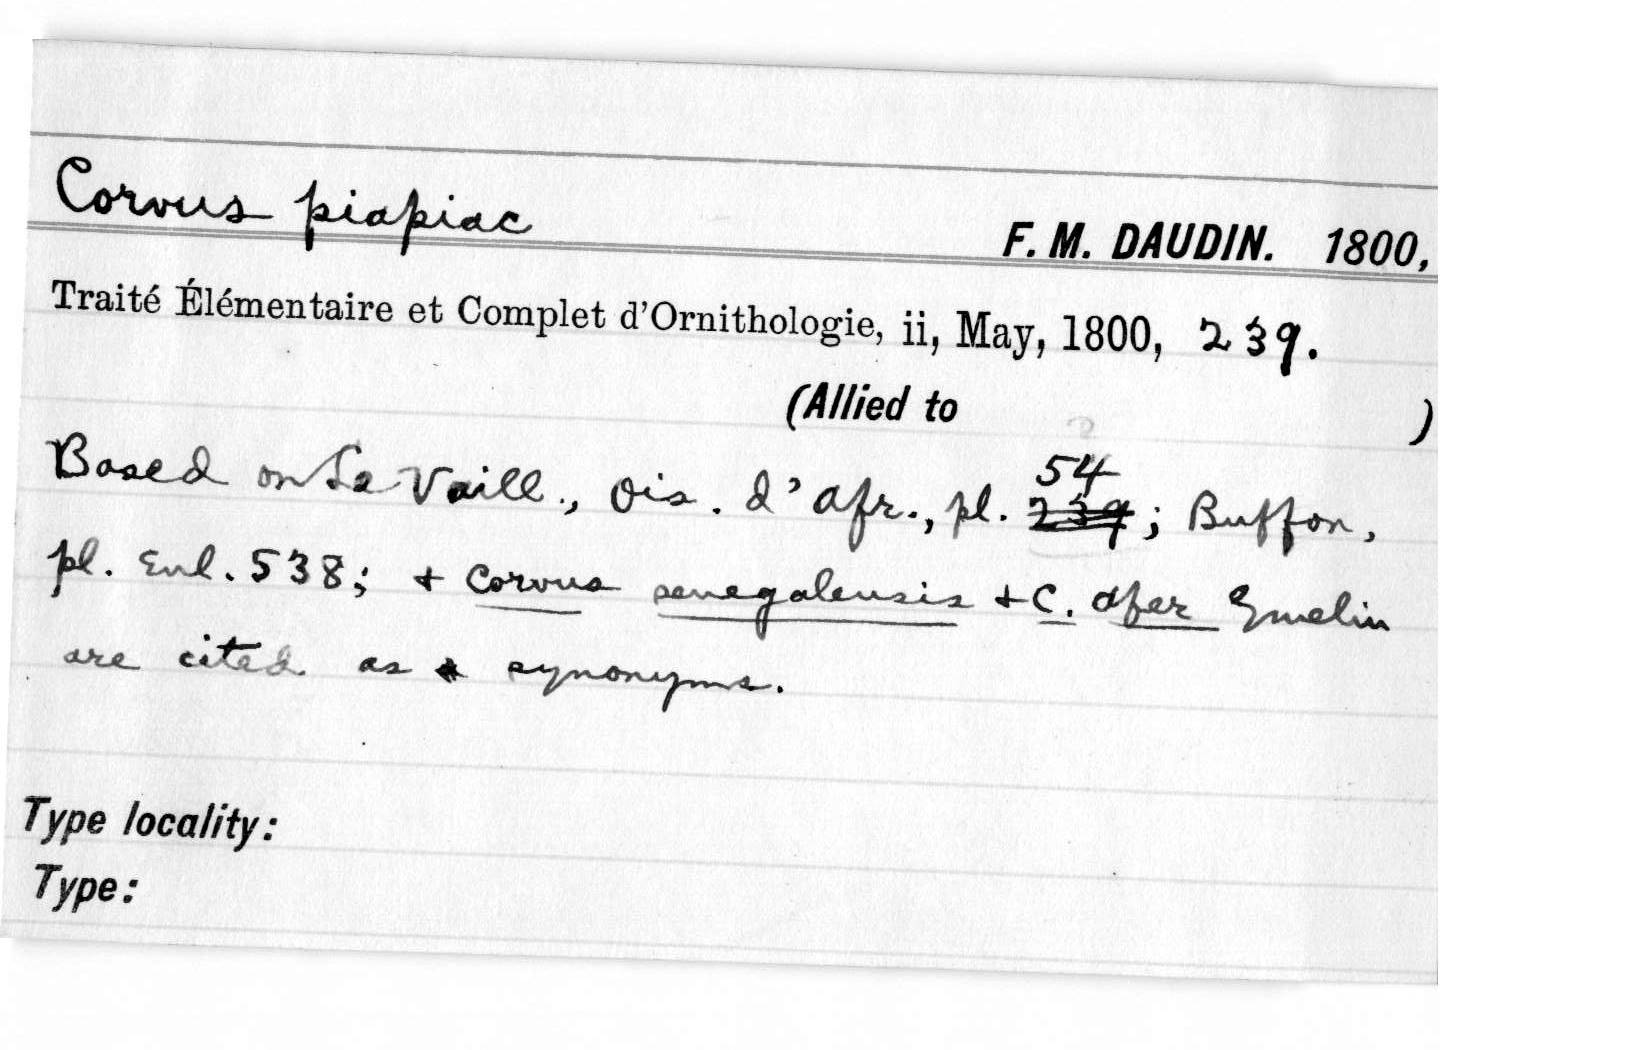 Corvus piapiac F. M. DAUDIN. 1800,
Traité Élémentaire et Complet d'Ornithologie, ii, May, 1800, 239.
(Allied to )
54
Based on Le Vaill., Ois. d'Afr., pl. 239; Buffon,
pl. Enl. 538; + Corvus senegalensis + C. afer Gmelin
are cited as synonyms.
Type locality:
Type: